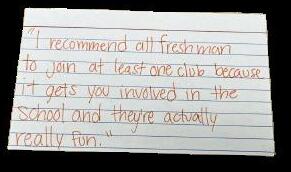 "I recommend all freshman
to join at least one club because
it gets you involved in the
school and they're actually
really fun."